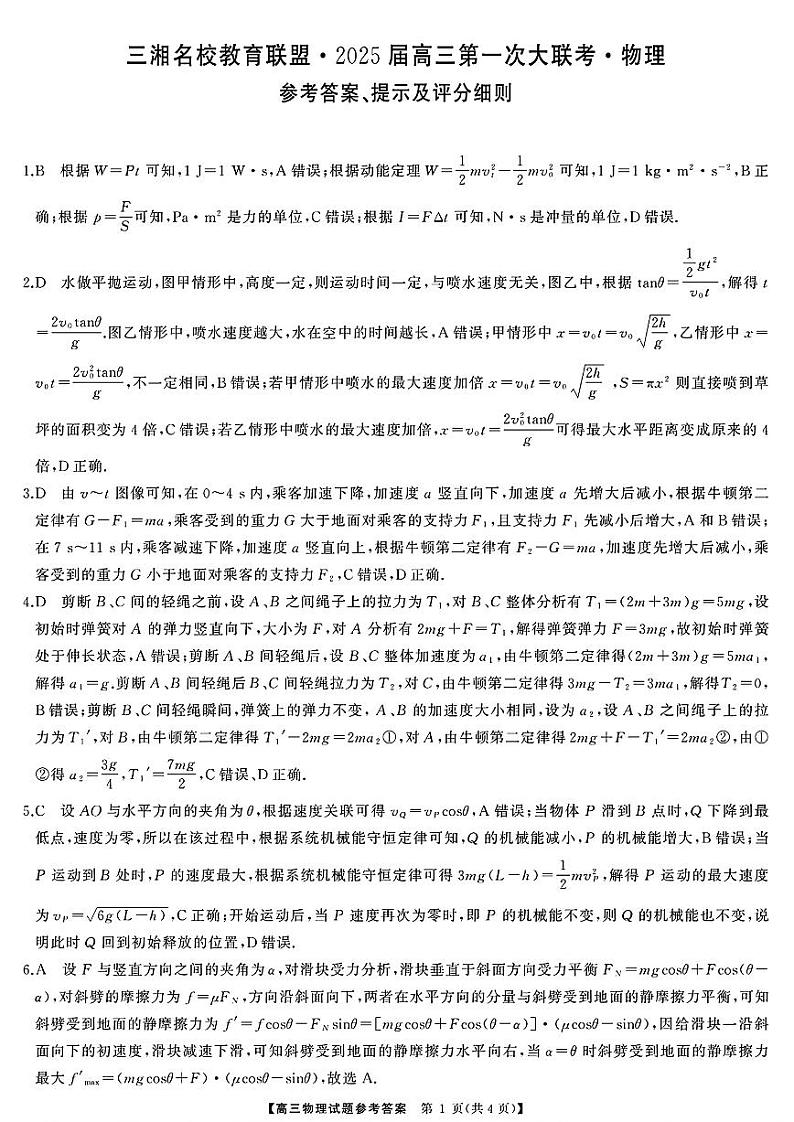 三湘名校教育联盟·2025届高三第一次大联考·物理
参考答案、提示及评分细则
1.B 根据W=Pt可知,1 J=1 W·s,A错误;根据动能定理W=\frac{1}{2}mv_t^2-\frac{1}{2}mv_0^2可知,1 J=1 kg·m²·s⁻²,B正
确;根据p=\frac{F}{S}可知,Pa·m²是力的单位,C错误;根据I=FΔt可知,N·s是冲量的单位,D错误.
2.D 水做平抛运动,图甲情形中,高度一定,则运动时间一定,与喷水速度无关,图乙中,根据tanθ=\frac{\frac{1}{2}gt^2}{v_0t},解得t
=\frac{2v_0tanθ}{g}.图乙情形中,喷水速度越大,水在空中的时间越长,A错误;甲情形中x=v₀t=v₀\sqrt{\frac{2h}{g}},乙情形中x=
v₀t=\frac{2v_0^2tanθ}{g},不一定相同,B错误;若甲情形中喷水的最大速度加倍x=v₀t=v₀\sqrt{\frac{2h}{g}},S=πx²则直接喷到草
坪的面积变为4倍,C错误;若乙情形中喷水的最大速度加倍,x=v₀t=\frac{2v_0^2tanθ}{g}可得最大水平距离变成原来的4
倍,D正确.
3.D 由v~t图像可知,在0~4 s内,乘客加速下降,加速度a竖直向下,加速度a先增大后减小,根据牛顿第二
定律有G-F₁=ma,乘客受到的重力G大于地面对乘客的支持力F₁,且支持力F₁先减小后增大,A和B错误;
在7 s~11 s内,乘客减速下降,加速度a竖直向上,根据牛顿第二定律有F₂-G=ma,加速度先增大后减小,乘
客受到的重力G小于地面对乘客的支持力F₂,C错误,D正确.
4.D 剪断B、C间的轻绳之前,设A、B之间绳子上的拉力为T₁,对B、C整体分析有T₁=(2m+3m)g=5mg,设
初始时弹簧对A的弹力竖直向下,大小为F,对A分析有2mg+F=T₁,解得弹簧弹力F=3mg,故初始时弹簧
处于伸长状态,A错误;剪断A、B间轻绳后,设B、C整体加速度为a₁,由牛顿第二定律得(2m+3m)g=5ma₁,
解得a₁=g.剪断A、B间轻绳后B、C间轻绳拉力为T₂,对C,由牛顿第二定律得3mg-T₂=3ma₁,解得T₂=0,
B错误;剪断B、C间轻绳瞬间,弹簧上的弹力不变,A、B的加速度大小相同,设为a₂,设A、B之间绳子上的拉
力为T₁′,对B,由牛顿第二定律得T₁′-2mg=2ma₂①,对A,由牛顿第二定律得2mg+F-T₁′=2ma₂②,由①
②得a₂=\frac{3g}{4},T₁′=\frac{7mg}{2},C错误、D正确.
5.C 设AO与水平方向的夹角为θ,根据速度关联可得v_Q=v_Pcosθ,A错误;当物体P滑到B点时,Q下降到最
低点,速度为零,所以在该过程中,根据系统机械能守恒定律可知,Q的机械能减小,P的机械能增大,B错误;当
P运动到B处时,P的速度最大,根据系统机械能守恒定律可得3mg(L-h)=\frac{1}{2}mv_P^2,解得P运动的最大速度
为v_P=\sqrt{6g(L-h)},C正确;开始运动后,当P速度再次为零时,即P的机械能不变,则Q的机械能也不变,说
明此时Q回到初始释放的位置,D错误.
6.A 设F与竖直方向之间的夹角为α,对滑块受力分析,滑块垂直于斜面方向受力平衡F_N=mgcosθ+Fcos(θ-
α),对斜劈的摩擦力为f=μF_N,方向沿斜面向下,两者在水平方向的分量与斜劈受到地面的静摩擦力平衡,可知
斜劈受到地面的静摩擦力为f′=fcosθ-F_Nsinθ=[mgcosθ+Fcos(θ-α)]·(μcosθ-sinθ),因给滑块一沿斜
面向下的初速度,滑块减速下滑,可知斜劈受到地面的静摩擦力水平向右,当α=θ时斜劈受到地面的静摩擦力
最大f′_{max}=(mgcosθ+F)·(μcosθ-sinθ),故选A.
【高三物理试题参考答案 第1页(共4页)】